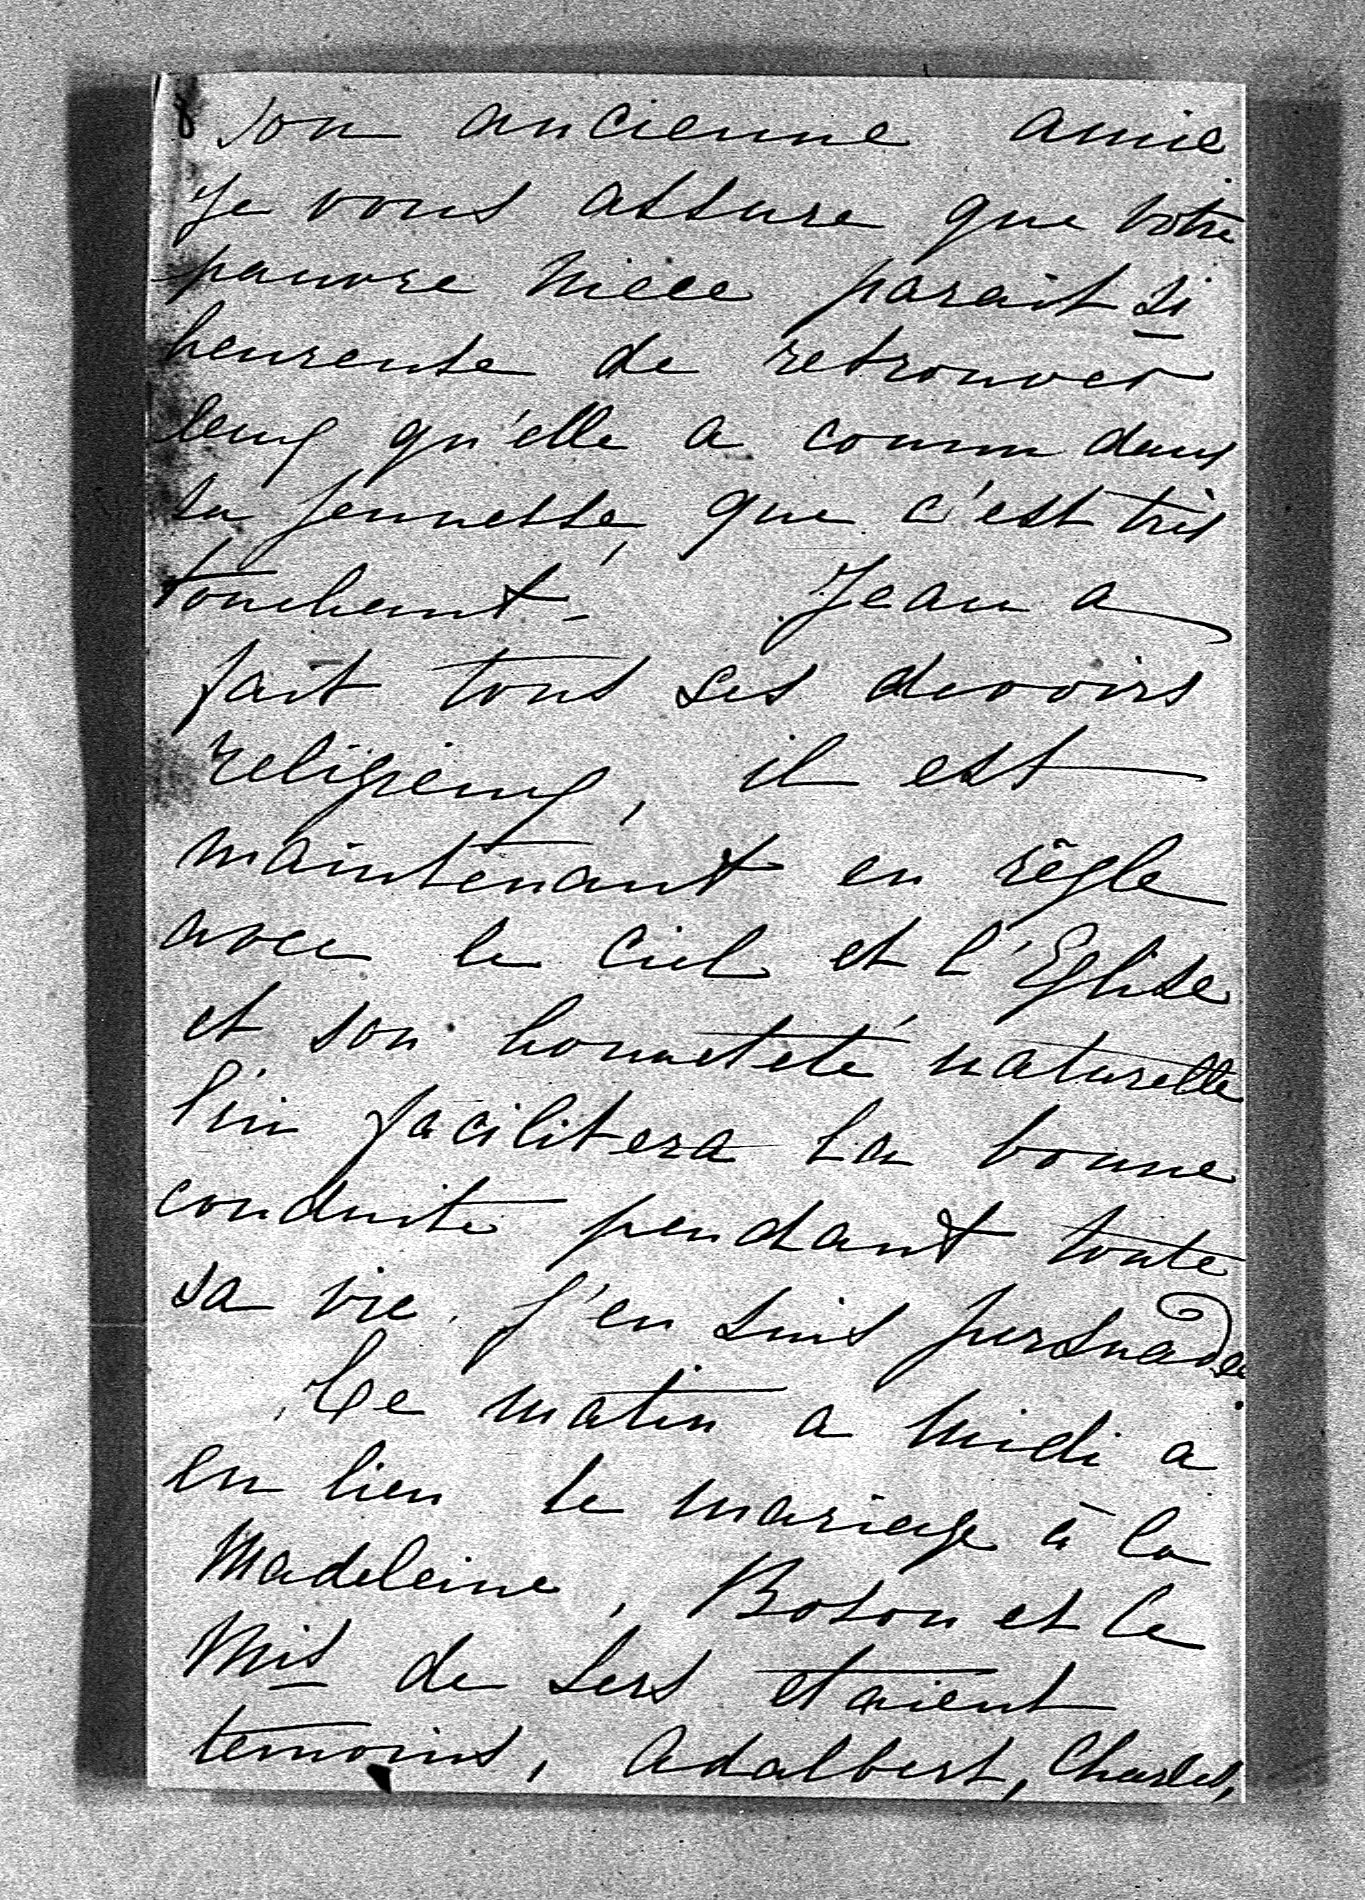 son ancienne amie
Je vous assure que votre
pauvre nièce parait si
heureuse de retrouver
ceux qu'elle a connu dans
sa jeunesse, que c'est très
touchant - Jean a
fait tous ses devoirs
religieux, il est
maintenant en règle
avec le Ciel et l'Eglise
et son honneteté naturelle
lui facilitera la bonne
conduite pendant toute
sa vie. J'en suis persuadée
Ce matin a midi a
eu lieu le mariage à la
Madeleine, Boson et le
Mis de Sers etaient
temoins, Adalbert, Charles,